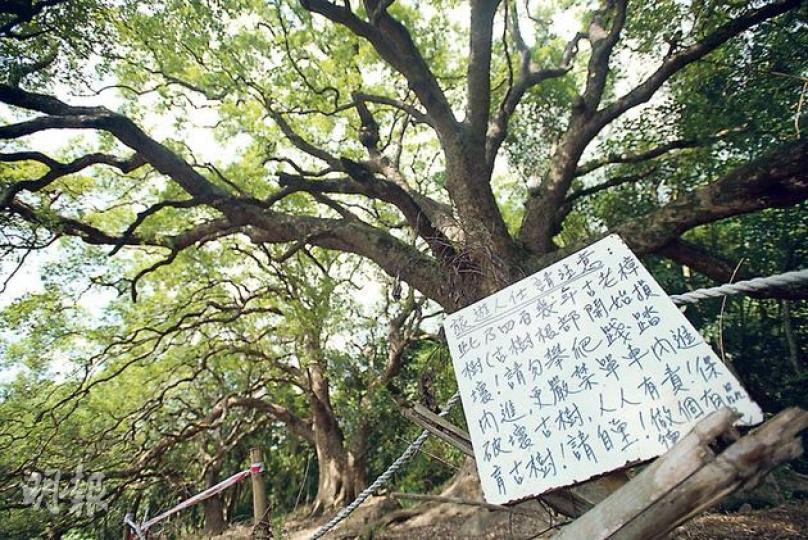 旅遊人仕請注意:
此乃四百幾年古老樟
樹(古樹根部開始損
壞!請勿攀爬踐踏
內進,更嚴禁單車內進
破壞古樹,人人有責!保
育古樹!請自重!做個有品
明報